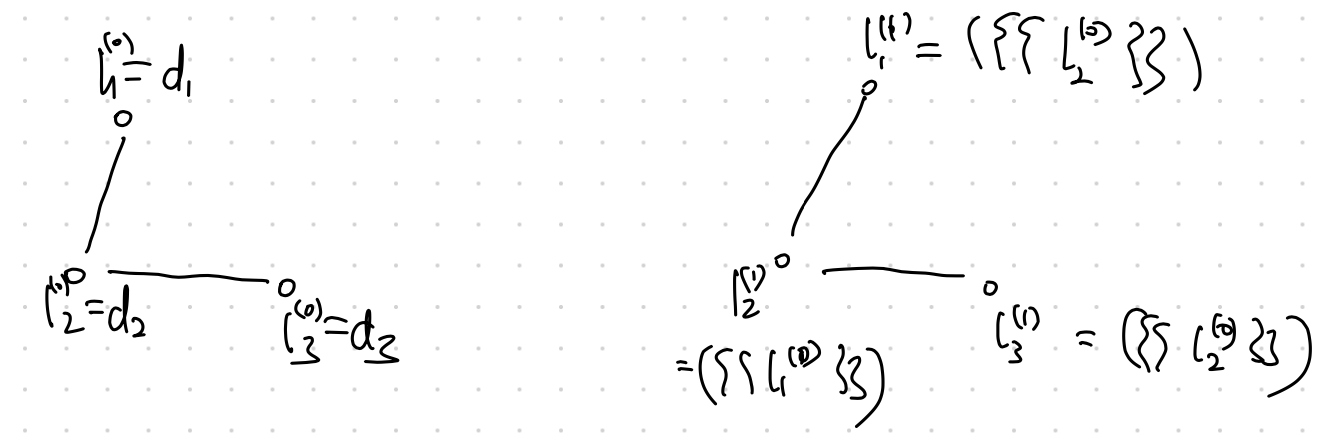 l₁⁽⁰⁾ = d₁
l₂⁽⁰⁾ = d₂
l₃⁽⁰⁾ = d₃
l₁⁽¹⁾ = ({{ l₂⁽⁰⁾ }})
l₂⁽¹⁾
= ({{ l₁⁽⁰⁾ }})
l₃⁽¹⁾ = ({{ l₂⁽⁰⁾ }})